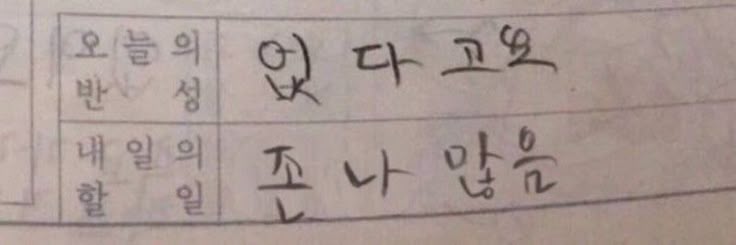 오늘의 반성 없다고요
내일의 할일 존나 많음